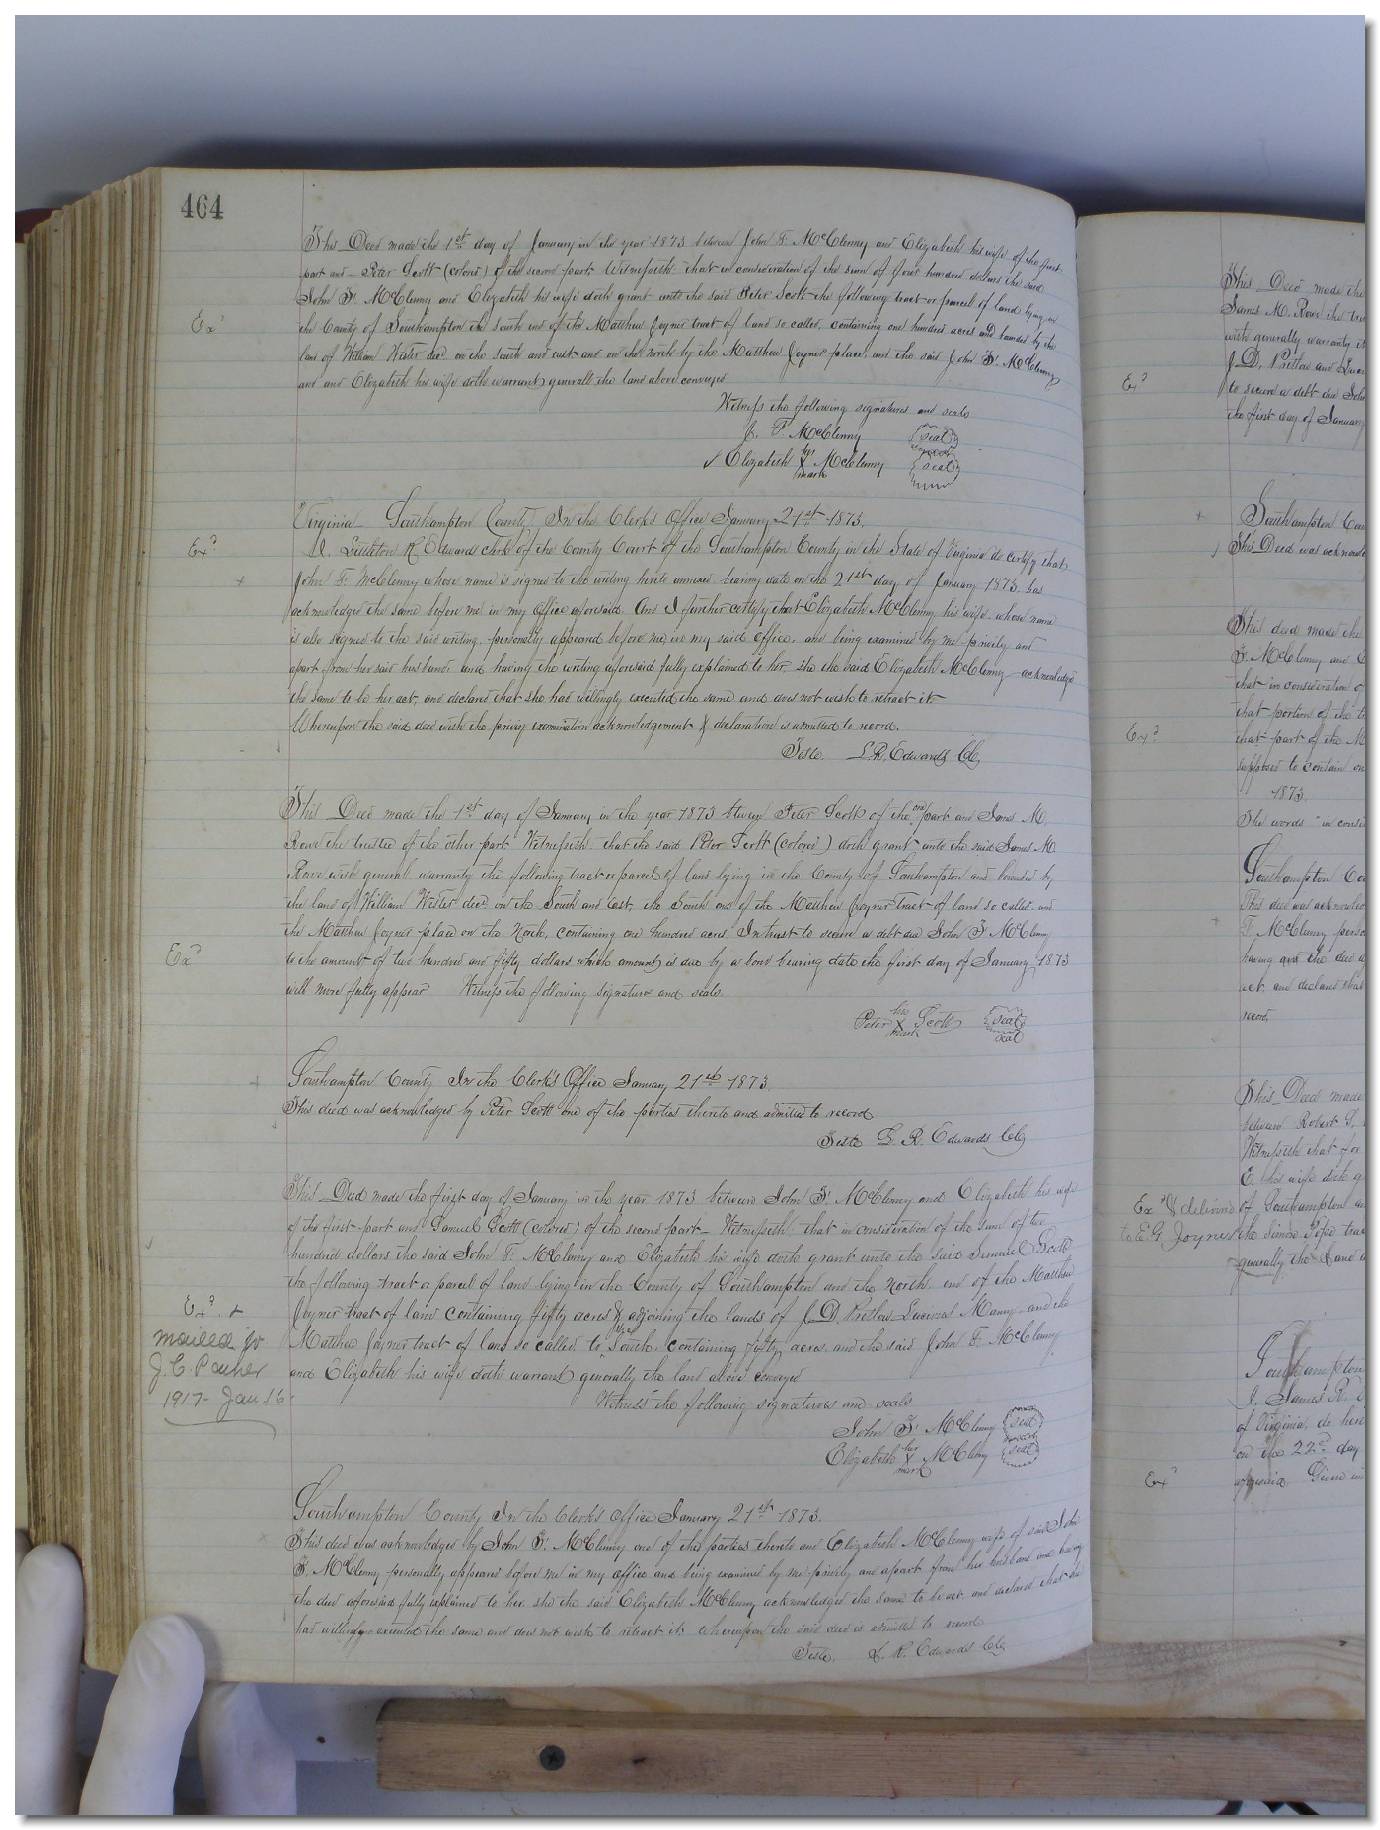 464
This Deed made the 1st day of January in the year 1873 between John F. McClenny and Elizabeth his wife of the first
part and Peter Scott (colored) of the second part Witnesseth that in consideration of the sum of four hundred dollars the said
John F. McClenny and Elizabeth his wife doth grant unto the said Peter Scott the following tract or parcel of land lying in
Exd
the County of Southampton the south end of the Matthew Joyner tract of land so called, containing one hundred acres and bounded by the
land of William Wester decd on the south and east and on the north by the Matthew Joyner place, and the said John F. McClenny
and and Elizabeth his wife doth warrant generally the land above conveyed
Witness the following signatures and seals
J. F. McClenny seal
Elizabeth her X mark McClenny seal
Virginia Southampton County, In the Clerk's Office January 21st 1873.
Exd
I, Littleton R. Edwards clerk of the County Court of the Southampton County in the State of Virginia do certify that
John F. McClenny whose name is signed to the writing hereto annexed bearing date on the 21st day of January 1873 has
acknowledged the same before me in my office aforesaid. And I further certify that Elizabeth McClenny his wife whose name
is also signed to the said writing, personally appeared before me in my said office, and being examined by me privily and
apart from her said husband and having the writing aforesaid fully explained to her, she the said Elizabeth McClenny acknowledged
the same to be her act, and declared that she had willingly executed the same and does not wish to retract it
Whereupon the said deed with the privy examination acknowledgement & declaration is admitted to record.
Teste. L. R. Edwards Clk,
This Deed made the 1st day of January in the year 1873 between Peter Scott of the one part and James M.
Rowe the trustee of the other part Witnesseth that the said Peter Scott (colored) doth grant unto the said James M.
Rowe with general warranty the following tract or parcel of land lying in the County of Southampton and bounded by
the land of William Wester decd on the South and East, the South end of the Matthew Joyner Tract of land so called and
the Matthew Joyner place on the North, containing one hundred acres In trust to secure a debt due John F. McClenny
Exd
to the amount of two hundred and fifty dollars which amount is due by a bond bearing date the first day of January 1873
will more fully appear Witness the following signature and seals.
Peter his X mark Scott seal
seal
Southampton County In the Clerk's Office January 21st 1873.
This deed was acknowledged by Peter Scott one of the parties thereto and admitted to record
Teste L. R. Edwards Clk
This Deed made the first day of January in the year 1873 between John F. McClenny and Elizabeth his wife
of the first part and Samuel Scott (colored) of the second part Witnesseth that in consideration of the sum of two
hundred dollars the said John F. McClenny and Elizabeth his wife doth grant unto the said Samuel Scott
the following tract or parcel of land lying in the County of Southampton and the North end of the Matthew
Exd. &
Joyner tract of land containing fifty acres & adjoining the lands of J. D. Pretlow and the
mailed for
Matthew Joyner tract of land so called to South containing fifty acres, and the said John F. McClenny
J. C. Parker
and Elizabeth his wife doth warrant generally the land above conveyed
1917 - Jan 16
Witness the following signatures and seals
John F. McClenny seal
Elizabeth her X mark McClenny seal
Southampton County In the Clerk's Office January 21st 1873.
This deed was acknowledged by John F. McClenny one of the parties thereto and Elizabeth McClenny wife of said John
F. McClenny personally appeared before me in my office and being examined by me privily and apart from her husband and having
the deed aforesaid fully explained to her she the said Elizabeth McClenny acknowledged the same to be act, and declared that she
had willingly executed the same and does not wish to retract it whereupon the said deed is admitted to record
Teste. L. R. Edwards Clk
This Deed made the
James M. Rowe the
with generally warranty
J. D. Pretlow and
Exd
to secure a debt due John
the first day of January
Southampton
This Deed was
This deed made the
F. McClenny and
that in consideration
that portion of the
Exd
that part of the
supposed to contain
1873.
The words "in
Southampton
This deed was
F. McClenny
having the deed
act and declared that
record.
This Deed made
between Robert
Witnesseth that for
E. his wife doth
Exd & delivered
of Southampton
to E. G. Joyner
the
generally the land
Southampton
I, James R.
of Virginia, do
on the 22d day
Exd
aforesaid Given